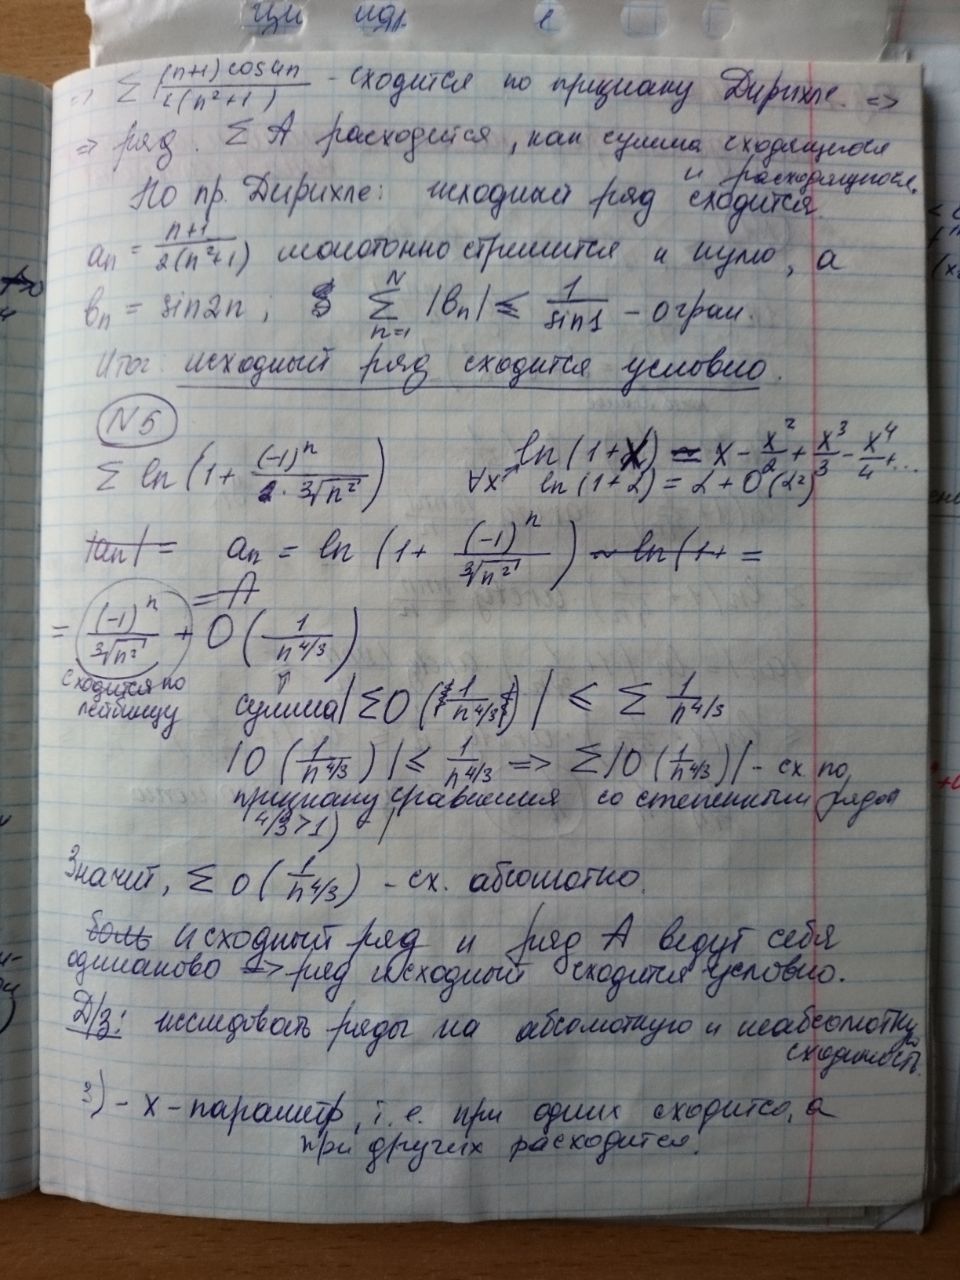 ци идр е
=> Σ (n+1) cos4n / 2(n²+1) - сходится по признаку Дирихле. =>
=> ряд. Σ A расходится, как сумма сходящегося
и расходящегося.
По пр. Дирихле: исходный ряд сходится.
aₙ = n+1 / 2(n²+1) монотонно стремится к нулю, а
bₙ = sin2n ; Σ_{n=1}^{N} |bₙ| ≤ 1/sin1 - огран.
Итог исходный ряд сходится условно.
N5
Σ ln (1 + (-1)ⁿ / 2·∛n²) ln(1+x) = x - x²/2 + x³/3 - x⁴/4 + ...
ln(1+α) = α + O(α²)
|aₙ| = aₙ = ln (1 + (-1)ⁿ / ∛n²) ~ ln(1+ =
= A
= (-1)ⁿ / ∛n² + O (1/n^{4/3})
сходится по
лейбницу
сумма |ΣO(1/n^{4/3})| ≤ Σ 1/n^{4/3}
|O(1/n^{4/3})| ≤ 1/n^{4/3} => Σ|O(1/n^{4/3})| - сх. по
признаку сравнения со степенным рядом
4/3>1)
Значит, Σ O(1/n^{4/3}) - сх. абсолютно.
боль исходный ряд и ряд A ведут себя
одинаково => ряд исходный сходится условно.
Д/з: исследовать ряды на абсолютную и неабсолютную
сходимость.
3) - x - параметр, т.е. при одних сходится, а
при других расходится!